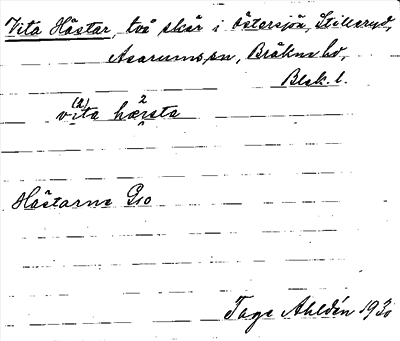 Vita Hästar, två skär i Östersjön, Stilleryd,
Asarums sn, Bräkne hd,
Blek. l.
(2) 2
vita hæsta
Hästarne G10
Tage Ahldén 1930